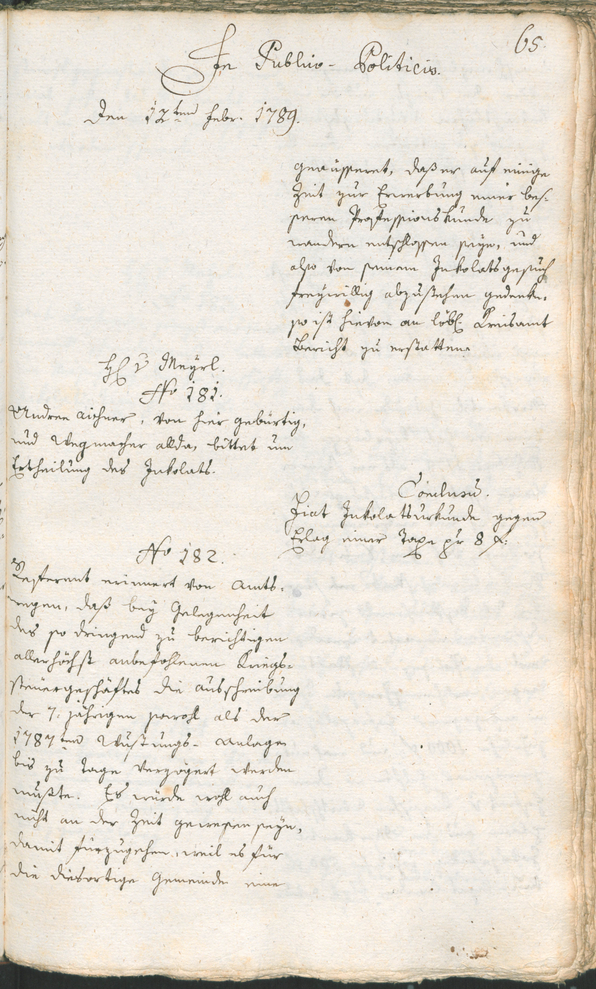 65.
In Publico-Politicis.
Den 12ten Febr: 1789.
geäusseret, daß er auf einige
Zeit zur Erwerbung einer bes-
seren Professionskunde zu
wandern entschlossen seye, und
also von seinem Inkolatsgesuch
freywillig abzustehen gedenke,
so ist hievon an löbl. Kreisamt
Bericht zu erstatten.
v Meyrl.
No 181.
Andree Aichner, von hier gebürtig,
und Wegmacher allda, bittet um
Ertheilung des Inkolats.
Conclusu.
Fiat Inkolatsurkunde gegen
Erlag einer Taxe pr 8 f:
No 182.
Refferent erinnert von Amts-
wegen, daß bey Gelegenheit
des so dringend zu berichtigen
allerhöchst anbefohlenen Kriegs-
steuergeschäftes die Ausschreibung
der 7. jährigen sowohl als der
1787ten Wustungs-Anlage
bis zu Tage verzögert werden
mußte. Es würde wohl auch
nicht an der Zeit gewesen seyn,
damit fürzugehen, weil es für
die diesortige Gemeinde eine